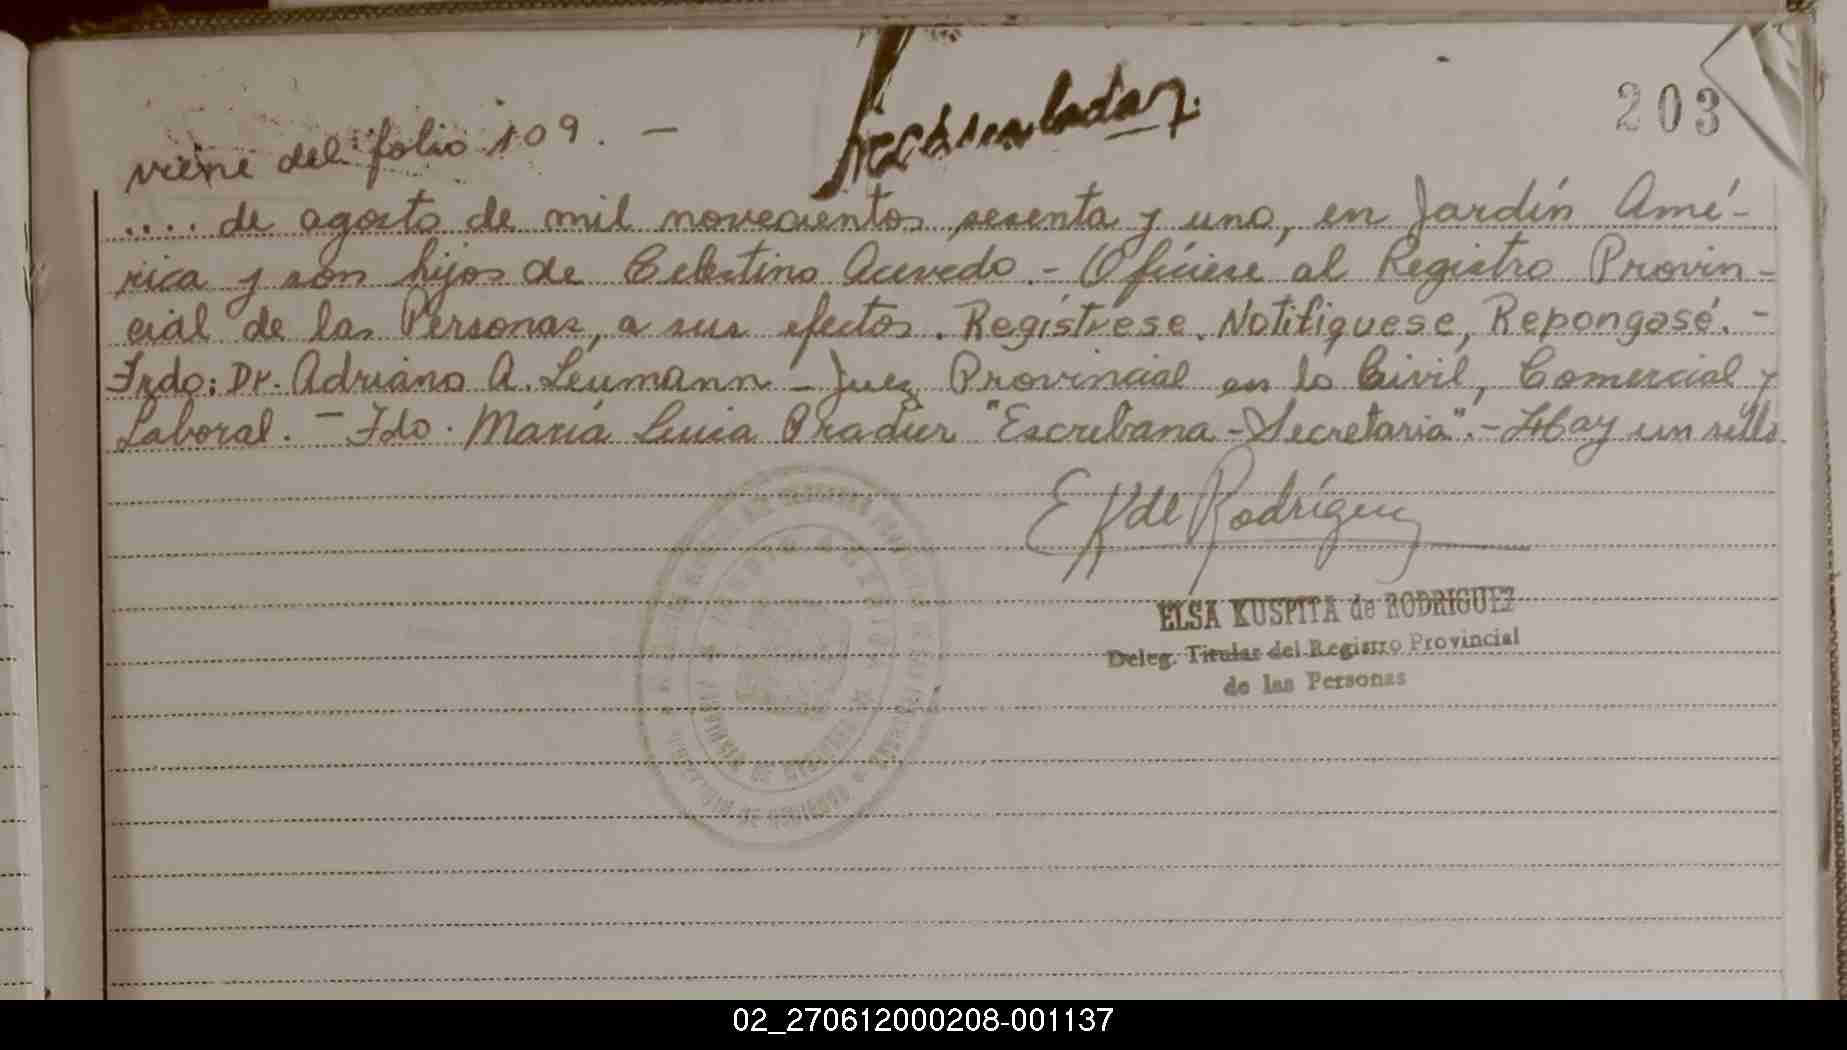 203
viene del folio 109. —
.... de agosto de mil novecientos sesenta y uno, en Jardín Amé-
rica y son hijos de Celestino Acevedo. - Ofíciese al Registro Provin-
cial de las Personas, a sus efectos. Regístrese. Notifiquese, Repongasé. -
Frdo: Dr. Adriano A. Leumann - Juez Provincial en lo Civil, Comercial y
Laboral. - Fdo. María Luisa Pradier "Escribana - Secretaria". - Hay un sello.
E K de Rodríguez
ELSA KUSPITA de RODRIGUEZ
Deleg. Titular del Registro Provincial
de las Personas
PROVINCIA DE MISIONES
02_270612000208-001137